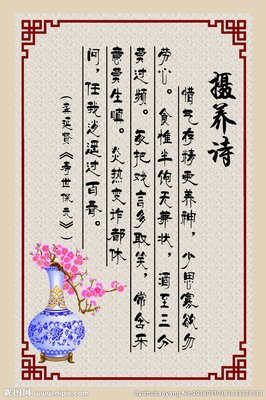 摄养诗
惜气存精更养神，少思寡欲勿
劳心。食惟半饱无兼味，酒至三分
莫过频。每把戏言多取笑，常含乐
意莫生嗔。炎热变诈都休
问，任我逍遥过百春。
（龚廷贤《寿世保元》）
昵图网 www.nipic.com